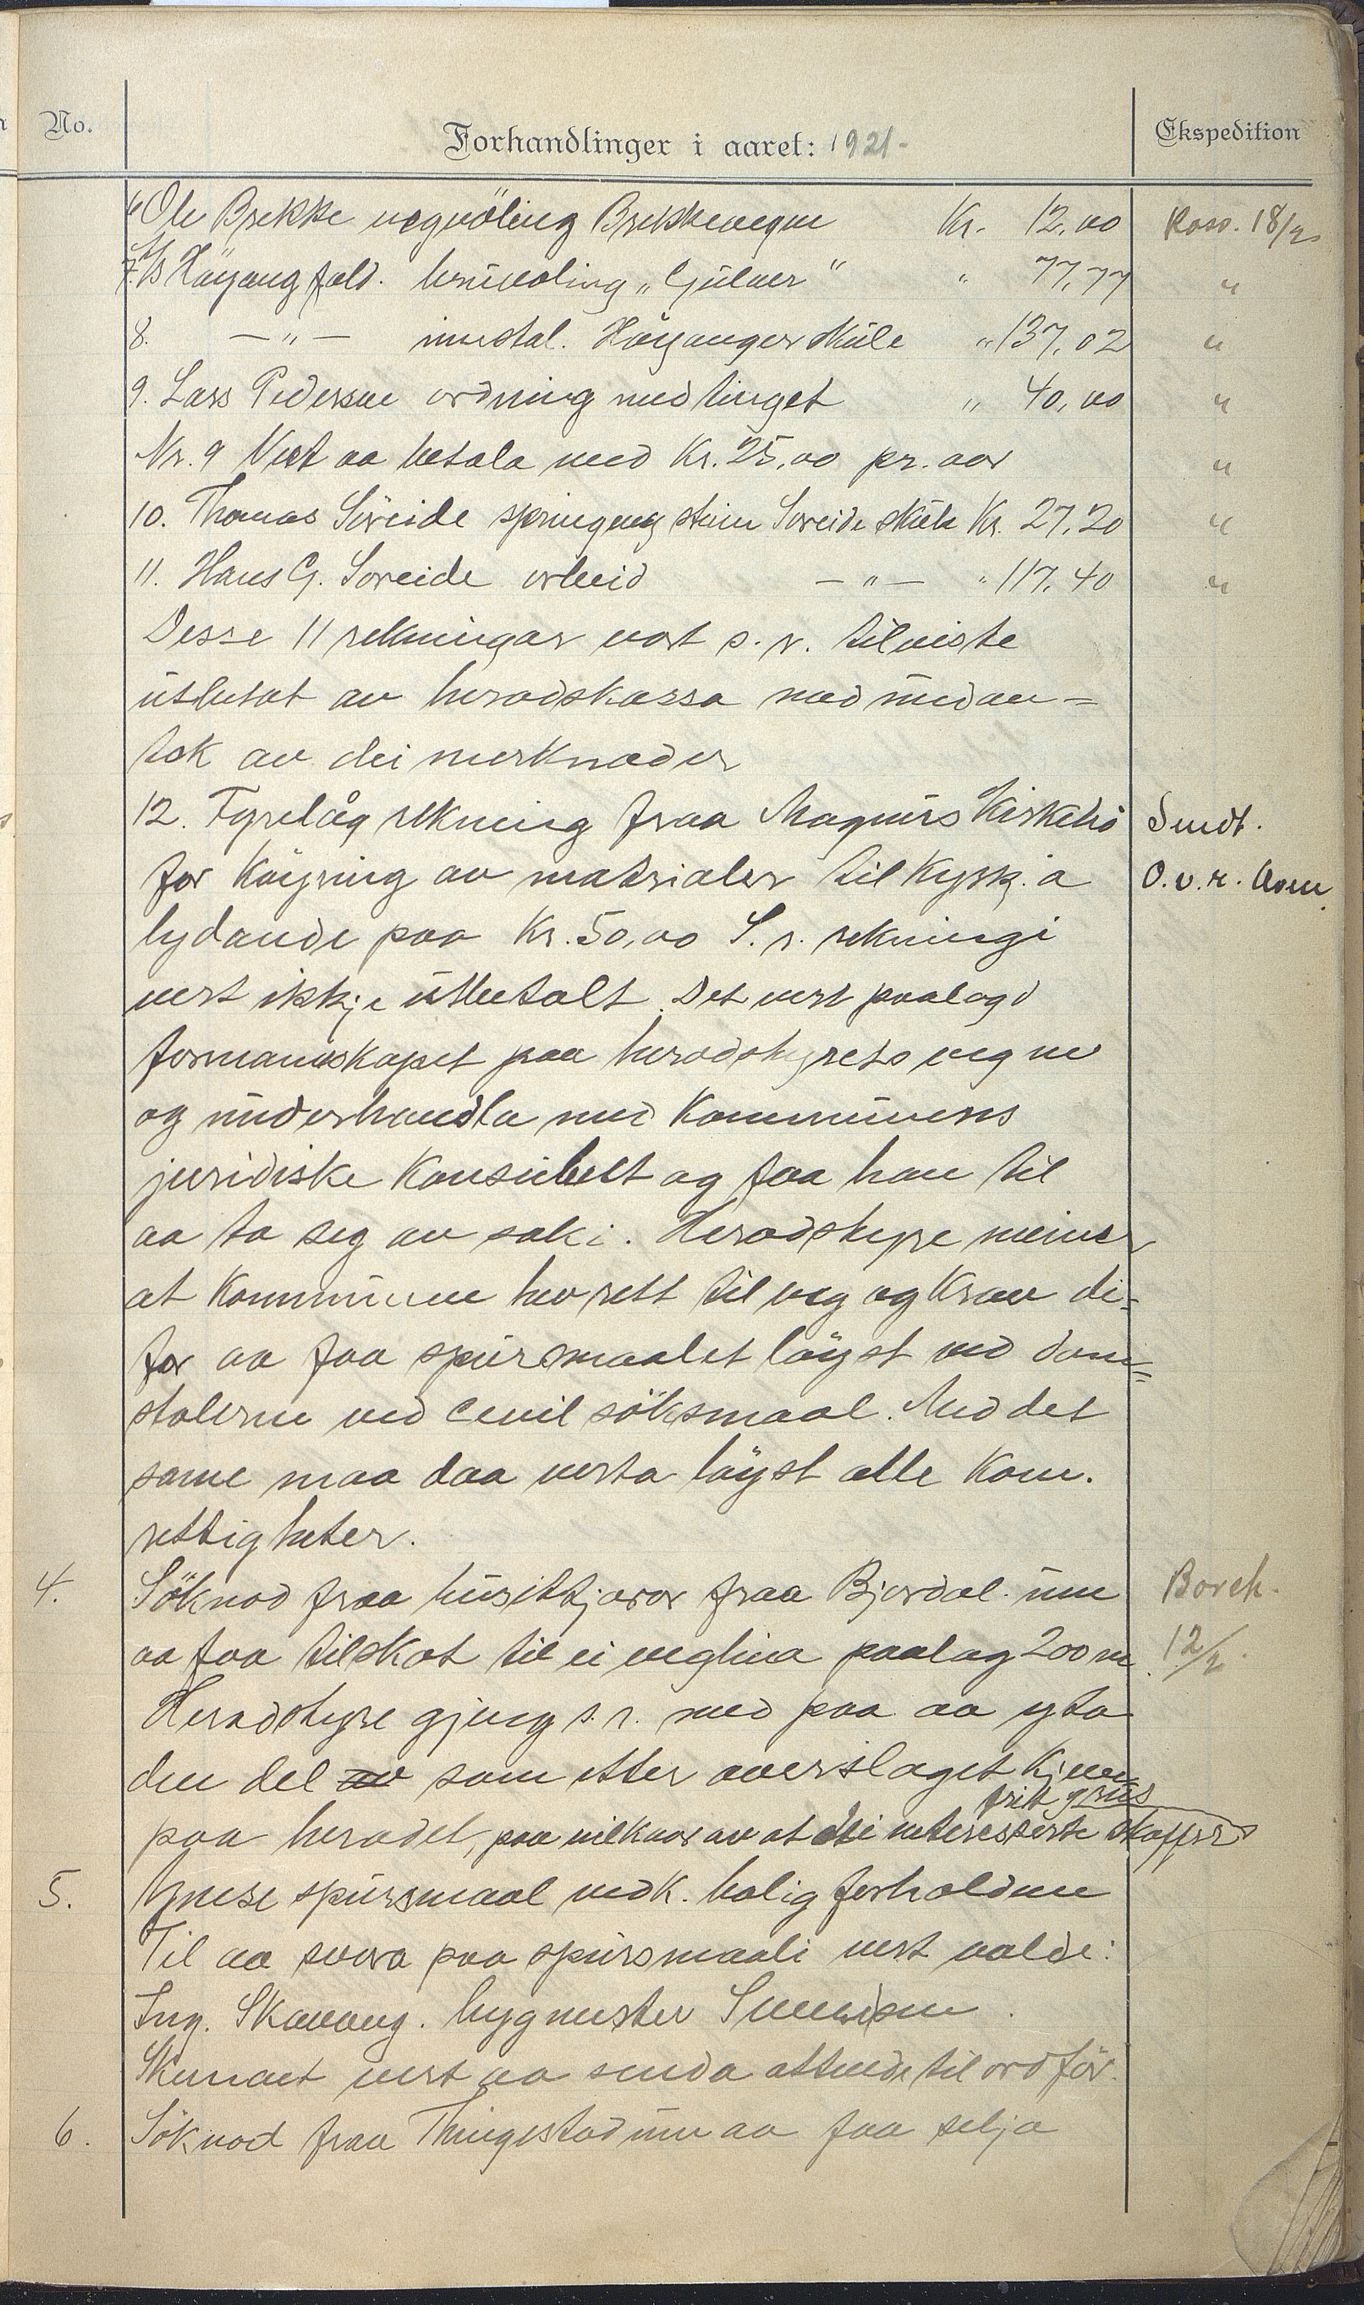 No. Forhandlinger i aaret: 1921- Ekspedition
6 Ole Brekke vegvöling Brekkevegen Kr. 12,00 Kass. 18/2
7. A/S Höyang fald. bruvöling „Gülaer" " 77,77 "
8. —"— instal. Höyanger skule " 137,02 "
9. Lars Pedersen ordning med tinget " 40,00 "
Nr. 9 Vert aa betala med Kr. 25,00 pr. aar "
10. Thomas Söreide sprenging stein Söreide skule Kr. 27,20 "
11. Hans G. Soreide arbeid —"— " 117,40 "
Desse 11 rekningar vart s. r. tilviste
utbetat av heradskassa med undan=
tak av dei merknader
12. Fyrelåg rekning fraa Magnus Kirkebö Sendt.
for köyring av matrialer til Kyrkja O.v.r.
lydande paa Kr. 50,00 S. r. rekningi
vert ikkje utbetalt. Det vert paalagd
formannskapet paa heradstyrets vegne
og underhandla med Kommunens
juridiske Konsulent og faa han til
aa ta seg av saki. Heradstyre meiner
at Kommunen hev rett til veg og Krav di=
for aa faa spursmaalet löyst ved dom=
stolerne ved cevil söksmaal. Med det
same maa daa verta löyst alle Kom.
rettigheter.
4. Söknad fraa husittjarar fraa Bjordal um Borch.
aa faa tilskot til ei veglina paalag 200 m. 12/2.
Heradstyre gjeng s. r. med paa aa yta
den del av som etter overslaget Kjem
fritt grus
paa heradet, paa vilkaar av at dei interesserte skaffer
5. Ymese spursmaal vedk. bolig forholdene
Til aa svara paa spursmaali vert valde:
Ing. Skavang. bygmester
Skemaet vert aa senda attende til ordför.
6. Söknad fraa Thingstad um aa faa selja